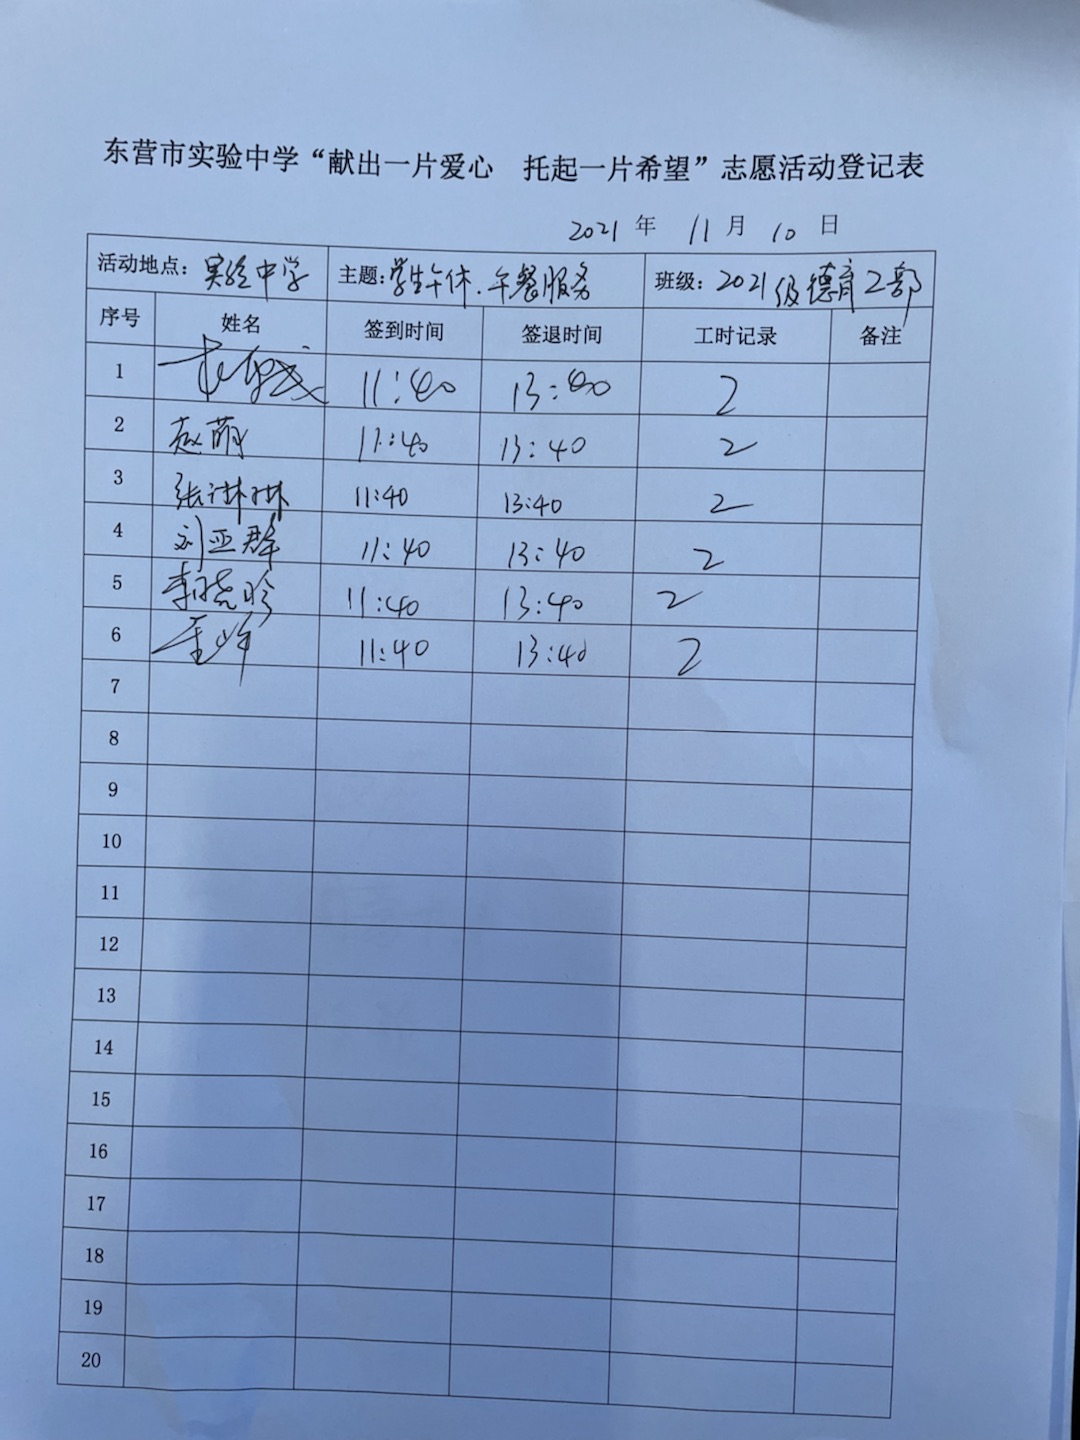 东营市实验中学“献出一片爱心 托起一片希望”志愿活动登记表
2021 年 11 月 10 日
活动地点：实验中学 主题：学生午休、午餐服务 班级：2021级德育工部
序号 姓名 签到时间 签退时间 工时记录 备注
1 11:40 13:40 2
2 赵萌 11:40 13:40 2
3 张琳琳 11:40 13:40 2
4 刘亚群 11:40 13:40 2
5 李晓玲 11:40 13:40 2
6 11:40 13:40 2
7
8
9
10
11
12
13
14
15
16
17
18
19
20